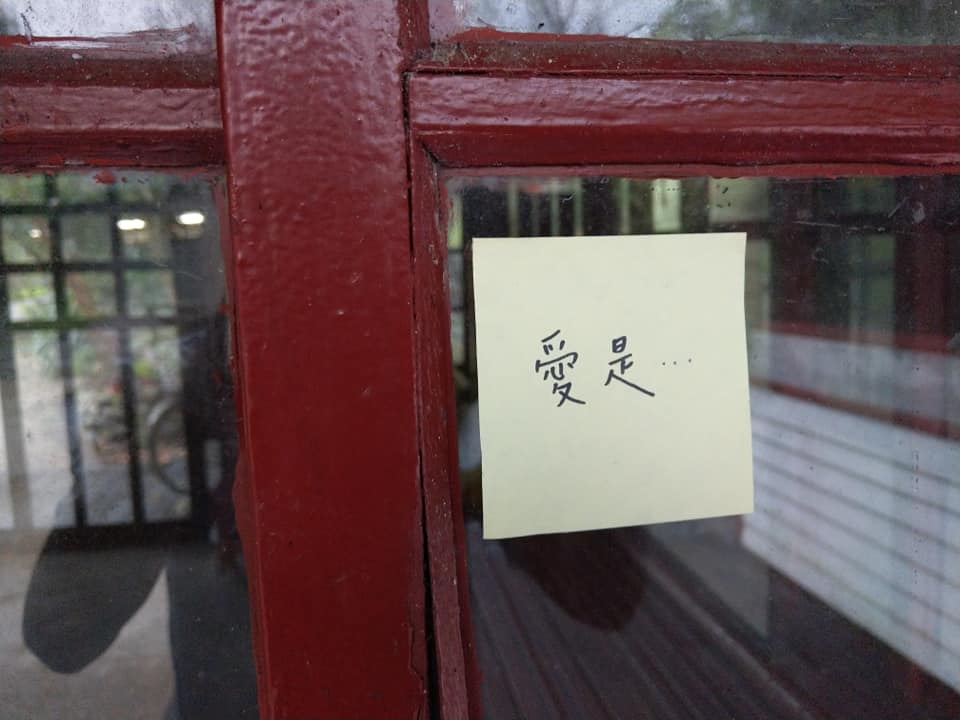 愛是...